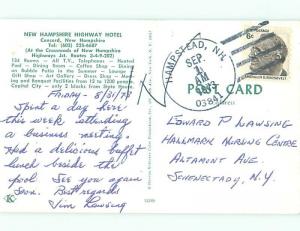 NEW HAMPSHIRE HIGHWAY HOTEL
Concord, New Hampshire
Tel: (603) 225-6687
(At the Crossroads of New Hampshire
Highways Jct. Routes 3-4-9-202)
134 Rooms - All T.V., Telephones - Heated
Pool - Dining Room - Coffee Shop - Dining
on Bubble Patio in the Summer - Lounge -
Gift Shop - Art Gallery - Dress Shop -
Banquet and Meeting Rooms up to 1200
Capital City - only 2 blocks from State House.
Friday - 8/31/79
Spent a day here
this week attending
a business meeting.
Had a delicious buffet
lunch beside the
pool. See you again
soon. Best regards,
Jim Lawsing
K
HAMPSTEAD, N.H.
SEP
AM
03841
6c
POST CARD
Address
EDWARD P LAWSING
HALLMARK NURSING CENTRE
ALTAMONT AVE
SCHENECTADY, N.Y.